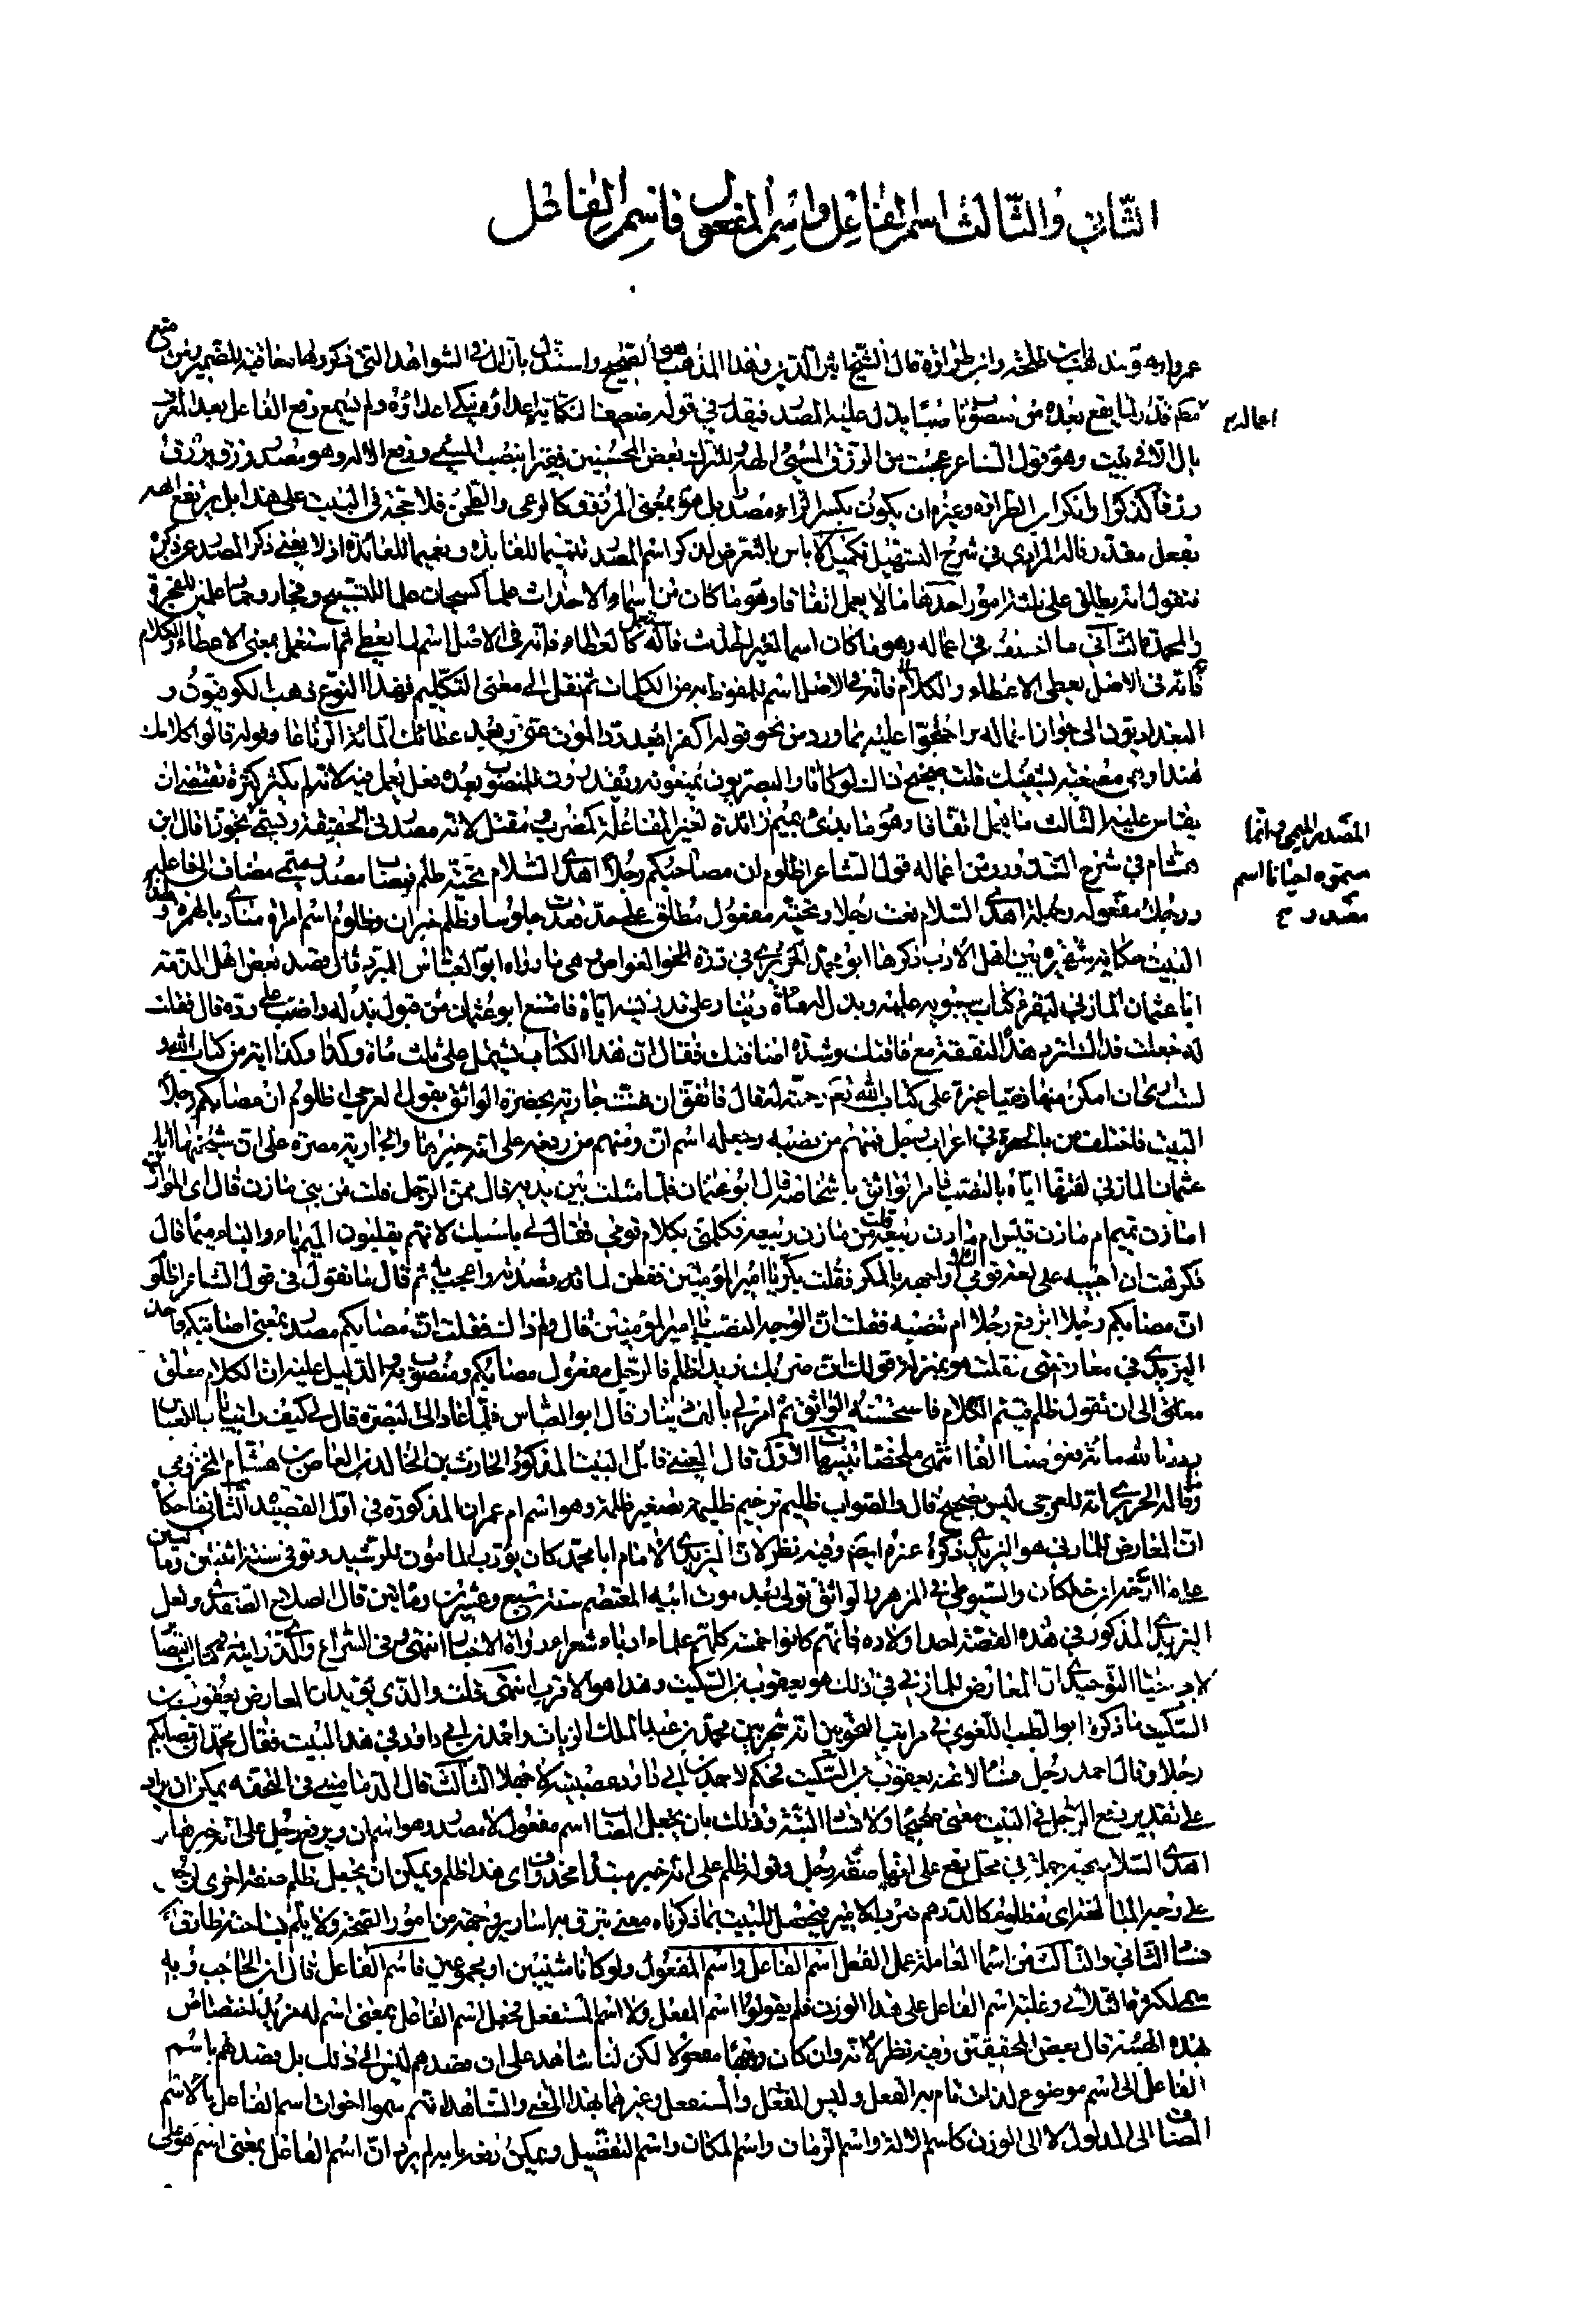 الثاني والثالث اسم الفاعل واسم المفعول فاسم الفاعل
طلحة وابن طراوة قال الشيخ اثير الدين وهذا المذهب هو الصحيح واستدل بان الـ في الشواهد التي ذكروها معاقبة للضمير ومن منع
اعماله قدر لما يقع بعده من منصوبا يدل عليه المصدر فيقدر في قوله ضعيف النكاية اعداءه ينكي اعداءه ولم يسمع رفع الفاعل بعد المعرف
بال الا في بيت وهو قول الشاعر عجبت من الرزق المسيء الهه للترك بعض المحسنين فقيرا بنصب المسيء ورفع الاله وهو مصدر رزق يرزق
رزقا كذكر وانكر ابن الطراوة وغيره ان يكون بكسر الراء مصدرا بل هو بمعنى المرتزق كالرعي والطحن فلا حجة في البيت على هذا بل يرتفع الهه
بفعل مقدر قاله المرادي في شرح التسهيل تكميل لا باس بالتعرض لذكر اسم المصدر تتميما للفائدة وتعميما للعائدة اذ لا يغني ذكر المصدر عن ذكره
فنقول انه يطلق على ثلثة امور احدها ما لا يعمل اتفاقا وهو ما كان من اسماء الاحداث علما كسبحان علما للتسبيح وفجار وحماد علمين للفجرة
والمحمدة الثاني ما اختلف في اعماله وهو ما كان اسما لغير الحدث فاستعمل له كالعطاء فانه في الاصل اسم لما يعطى ثم استعمل بمعنى الاعطاء والكلام
فانه في الاصل اسم للملفوظ به من الكلمات ثم نقل الى معنى التكليم فهذا النوع ذهب الكوفيون و
البغداديون الى جواز اعماله احتجوا عليه بما ورد من نحو قوله اكفرا بعد رد الموت عني وبعد عطائك المائة الرتاعا وقوله قالوا كلامك
هندا وهي مصغية يشفيك قلت صحيح ذاك لو كانا والبصريون يمنعونه ويقدرون للمنصوب بعده فعل يعمل فيه لانه لم يكثر كثرة تقتضي ان
يقاس عليه الثالث ما يعمل اتفاقا وهو ما بدئ بميم زائدة لغير المفاعلة كمضرب ومقتل لانه مصدر في الحقيقة ويسمى تجوزا قال ابن
المصدر الميمي وانما
سموه احيانا اسم
مصدر
هشام في شرح الشذور ومن اعماله قول الشاعر اظلوم ان مصابكم رجلا اهدى السلام تحية ظلم فمصاب مصدر ميمي مضاف الى فاعله
ورجلا مفعوله وجملة اهدى السلام نعت رجلا وتحية مفعول مطلق على حد قعدت جلوسا وظلم خبر ان وظلوم اسم امراة منادى بالهمزة ولهذا
البيت حكاية شهيرة بين اهل الادب ذكرها ابو محمد الحريري في درة الغواص وهي ما رواه ابو العباس المبرد قال قصد بعض اهل الذمة
ابا عثمان المازني ليقرء كتاب سيبويه عليه وبذل له مأة دينار على تدريسه اياه فامتنع ابو عثمان من قبول بذله واضب على رده قال فقلت
له جعلت فداك اترد هذه النفقة مع فاقتك وشدة اضاقتك فقال ان هذا الكتاب يشتمل على ثلث مأة وكذا وكذا اية من كتاب الله و
لست ارى ان امكن منها ذميا غيرة على كتاب الله وحمية له قال فاتفق ان غنت جارية بحضرة الواثق بقول العرجي اظلوم ان مصابكم رجلا
البيت فاختلف من بالحضرة في اعراب رجل فمنهم من نصبه وجعله اسم ان ومنهم من رفعه على انه خبرها والجارية مصرة على ان شيخها ابا
عثمان المازني لقنها اياه بالنصب فامر الواثق باشخاصه قال ابو عثمان فلما مثلت بين يديه قال ممن الرجل قلت من بني مازن قال اي الموازن
امازن تميم ام مازن قيس ام مازن ربيعة قلت من مازن ربيعة فكلمني بكلام قومي فقال لي باسمك لانهم يقلبون الميم باء والباء ميما قال
فكرهت ان اجيبه على لغة قومي لئلا اواجهه بالمكر فقلت بكر يا امير المؤمنين ففطن لما قصدته واعجب به ثم قال ما تقول في قول الشاعر اظلوم
ان مصابكم رجلا اترفع رجلا ام تنصبه فقلت ان الوجه النصب يا امير المؤمنين قال ولم ذاك فقلت ان مصابكم مصدر بمعنى اصابتكم فاخذ
اليزيدي في معارضتي فقلت هو بمنزلة قولك ان ضربك زيدا ظلم فالرجل مفعول مصابكم ومنصوب به والدليل عليه ان الكلام معلق
معلق الى ان تقول ظلم فيتم الكلام فاستحسنه الواثق ثم امر لي بالف دينار قال ابو العباس فلما عاد الى البصرة قال لي كيف رايت يا ابا العباس
رددنا لله مائة فعوضنا الفا انتهى ملخصا تنبيهات الاول قال العيني قائل البيت المذكور الحارث بن خالد بن العاص بن هشام المخزومي
وقاله الحريري انه للعرجي ليس بصحيح قال والصواب ظليم ترخيم ظليمة تصغير ظلمة وهو اسم ام عمران المذكورة في اول القصيدة الثاني ما حكاه
ان المعارض للمازني هو اليزيدي ذكره غيره ايضا وفيه نظر لان اليزيدي الامام ابا محمد كان يؤدب المامون للرشيد وتوفي سنة اثنتين ومائتين
خلكان والسيوطي في المزهر والواثق تولى بعد موت ابيه المعتصم سنة سبع وعشرين ومائتين قال الصلاح الصفدي ولعل
اليزيدي المذكور في هذه القصة احد اولاده فانهم كانوا خمسة كلهم علماء ادباء شعراء رواة الاخبار انتهى والذي رايته في كتاب البصائر
لابي حيان التوحيدي ان المعارض للمازني في ذلك هو يعقوب بن السكيت وهذا هو الاقرب انتهى قلت والذي يؤيد ان المعارض يعقوب بن
السكيت ما ذكره ابو الطيب اللغوي في مراتب النحويين انه شجر بين محمد بن عبد الملك الزيات واحمد بن ابي داود في هذا البيت فقال محمد ان مصابكم
رجلا وقال احمد رجل فسألا عنه يعقوب بن السكيت فحكم لاحمد بن ابي داود عصبية لا جهلا الثالث قال الدماميني في التحفة يمكن ان يراد
على تقدير رفع الرجل في البيت معنى صحيحا ولا فساد البتة وذلك بان يجعل المصاب اسم مفعول لا مصدر وهو اسم ان ويرفع رجل على انه خبرها و
اهدى السلام تحية جملة في محل رفع على انها صفة رجل وقوله ظلم على انه خبر مبتدا محذوف اي هذا ظلم ويمكن ان يجعل ظلم صفة اخرى لرجل
على وجه المبالغة اي مظلوم كالدرهم ضرب الامير فيحصل للبيت بما ذكرناه معنى
الثاني والثالث من اسماء العاملة عمل الفعل اسم الفاعل واسم المفعول ولو كانا مثنيين او مجموعين فاسم الفاعل قال ابن الحاجب وبه
سمي لكثرة الثلاثي وغلبة اسم الفاعل على هذا الوزن فلم يقولوا اسم المفعل ولا اسم المستفعل فجعل اسم الفاعل بمعنى اسم له مزيد اختصاص
بهذه الهيئة قال بعض المحققين وفيه نظر لانه وان كان وجها معقولا لكن لنا شاهد على ان قصدهم ليس الى ذلك بل قصدهم باسم
الفاعل الى اسم موضوع لذات قام به الفعل وليس المفعل والمستفعل وغيرهما بهذا المعنى والشاهد انهم سموا اخوات اسم الفاعل بالاسم
المضاف الى المدلول لا الى الوزن كاسم الالة واسم الزمان واسم المكان واسم التفضيل ويمكن دفعه بانه لم يرد ان اسم الفاعل بمعنى اسم هو على